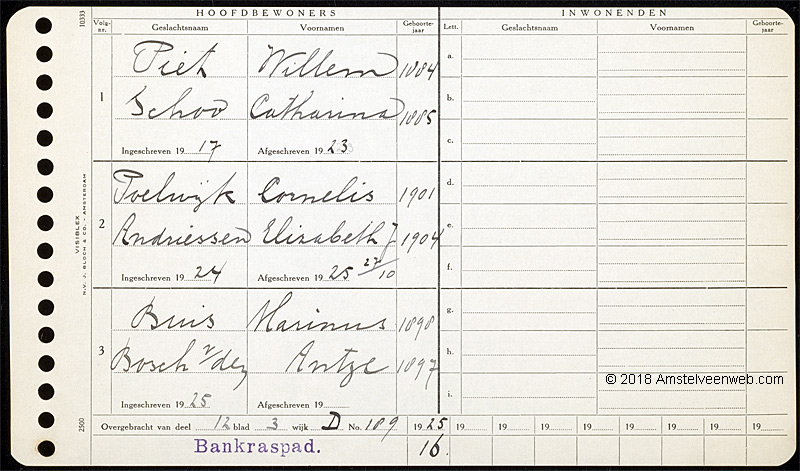 HOOFDBEWONERS INWONENDEN
Volg-nr. Geslachtsnaam Voornamen Geboorte-jaar Lett. Geslachtsnaam Voornamen Geboorte-jaar
1 Piet Willem 1884 a.
Schoo Catharina 1885 b.
Ingeschreven 19 17 Afgeschreven 19 23 c.
Poelwijk Cornelis 1901 d.
2 Andriessen Elisabeth J 1904 e.
Ingeschreven 19 24 Afgeschreven 19 25 27/10 f.
Buis Marinus 1898 g.
3 Bosch v/den Antje 1897 h.
Ingeschreven 19 25 Afgeschreven 19 i.
Overgebracht van deel 12 blad 3 wijk D No. 189 19 25 19 19 19 19 19 19 19 19
Bankraspad. 16.
10333
VISIBLEX
N.V. J. BLOCH & CO. - AMSTERDAM
2500
© 2018 Amstelveenweb.com